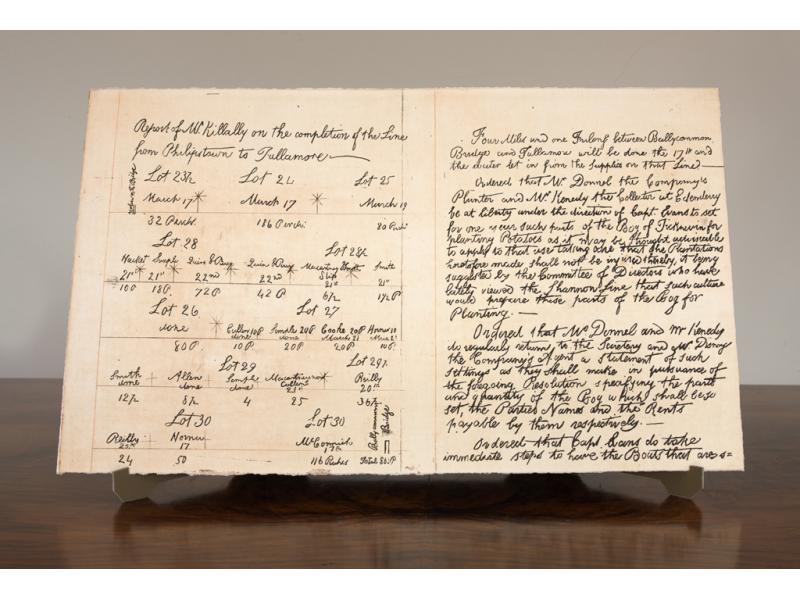 Report of Mr. Killally on the completion of the Line
from Philipstown to Tullamore
Lot 23½ Lot 24 Lot 25
March 17 March 17 March 19
32 Perch. 186 Perch. 80 Perch.
Lot 28 Lot 28½
Hacket Semple
21st 21st 22nd 22nd 21st 21st
100 18P. 72P 42P. 6½ 17½P
Lot 26 Lot 27
done Semple 20P Cooke 20P
done done March 21
80P. 10P. 20P 20P. 10P.
Lot 29 Lot 29½
Smith Allen Semple Reilly
done done done 21st 20th
12½ 8½ 4 25 36½
Lot 30 Lot 30
Reilly
17
24 50 116 Perches Total
Ballycommon
Bridge
Four Miles and one Furlong between Ballycommon
Bridge and Tullamore will be done the 17th and
the water let in from the supplies on that Line
Ordered that Mr. Donnel the Company's
Planter and Mr. Kenedy the Collector at Edenderry
be at liberty under the direction of Capt. Evans to set
for one year such parts of the Bog of Ticknevin for
planting Potatoes as it may be thought adviseable
to apply to that use taking care that the Plantations
heretofore made shall not be injured thereby, it being
suggested by the Committee of Directors who have
lately viewed the Shannon Line that such culture
would prepare these parts of the Bog for
Planting.
Ordered that Mr. Donnel and Mr Kenedy
do regularly return to the Secretary and
the Company's Agent a statement of such
Settings as they shall make in pursuance of
the foregoing Resolution specifying the parts
and quantity of the Bog which shall be so
set, the Parties Names and the Rents
payable by them respectively.
Ordered that Capt. Evans do take
immediate steps to have the Boats that are s=